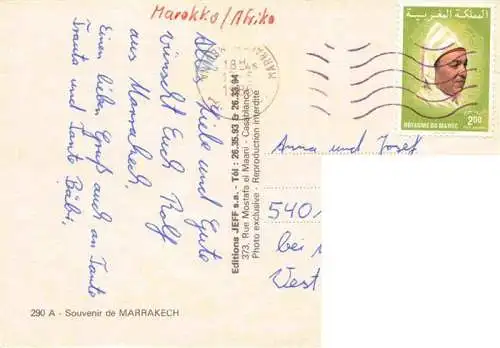 Marokko/Afrika
Alles Liebe und Gute
wünscht Euch Rolf
aus Marrakech.
Einen lieben Gruß auch an Tante
Trautl und Tante Bäbi.
Editions JEFF s.a. - Tél : 26.35.93 & 26.33.94
373, Rue Mostafa el Maani - Casablanca
Photo exclusive - Reproduction interdite
290 A - Souvenir de MARRAKECH
المملكة المغربية
2,00
ROYAUME DU MAROC
Anna und Josef
540
bei
Vest